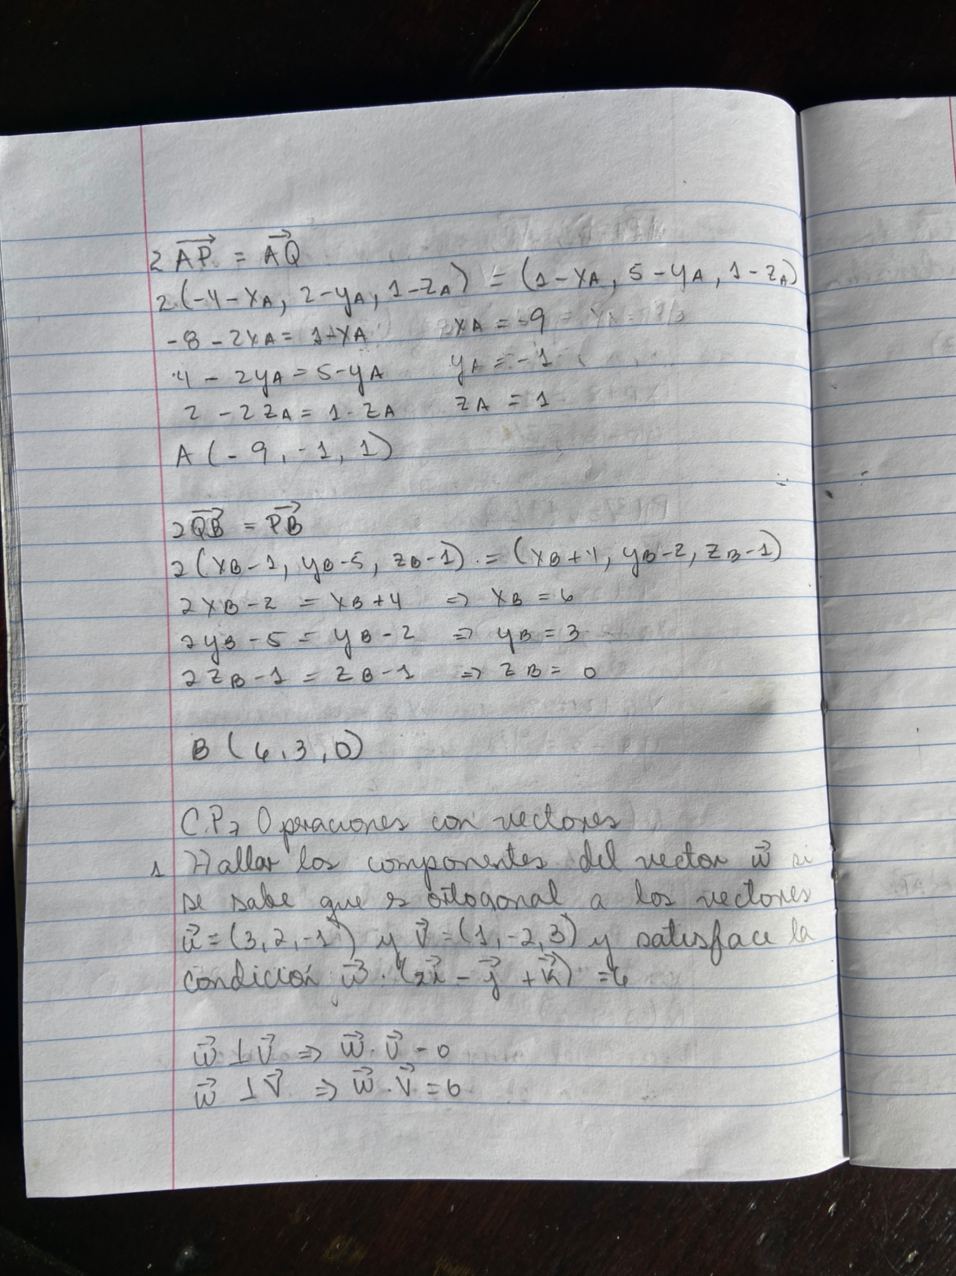 2 AP = AQ
2(-4-xA, 2-yA, 1-zA) = (1-xA, 5-yA, 1-zA)
-8-2xA = 1-xA xA = -9
4-2yA = 5-yA yA = -1
2-2zA = 1-zA zA = 1
A(-9, -1, 1)
2QB = PB
2(xB-1, yB-5, zB-1) = (xB+4, yB-2, zB-1)
2xB-2 = xB+4 => xB = 6
2yB-5 = yB-2 => yB = 3
2zB-1 = zB-1 => zB = 0
B(6,3,0)
C.P2 Operaciones con vectores
1 Hallar los componentes del vector w⃗ si
se sabe que es ortogonal a los vectores
u⃗ = (3,2,-1) y v⃗ = (1,-2,3) y satisface la
condición w⃗ · (2i⃗ - j⃗ + k⃗) = 6
w⃗ ⊥ v⃗ => w⃗ · v⃗ = 0
w⃗ ⊥ v⃗ => w⃗ · v⃗ = 0